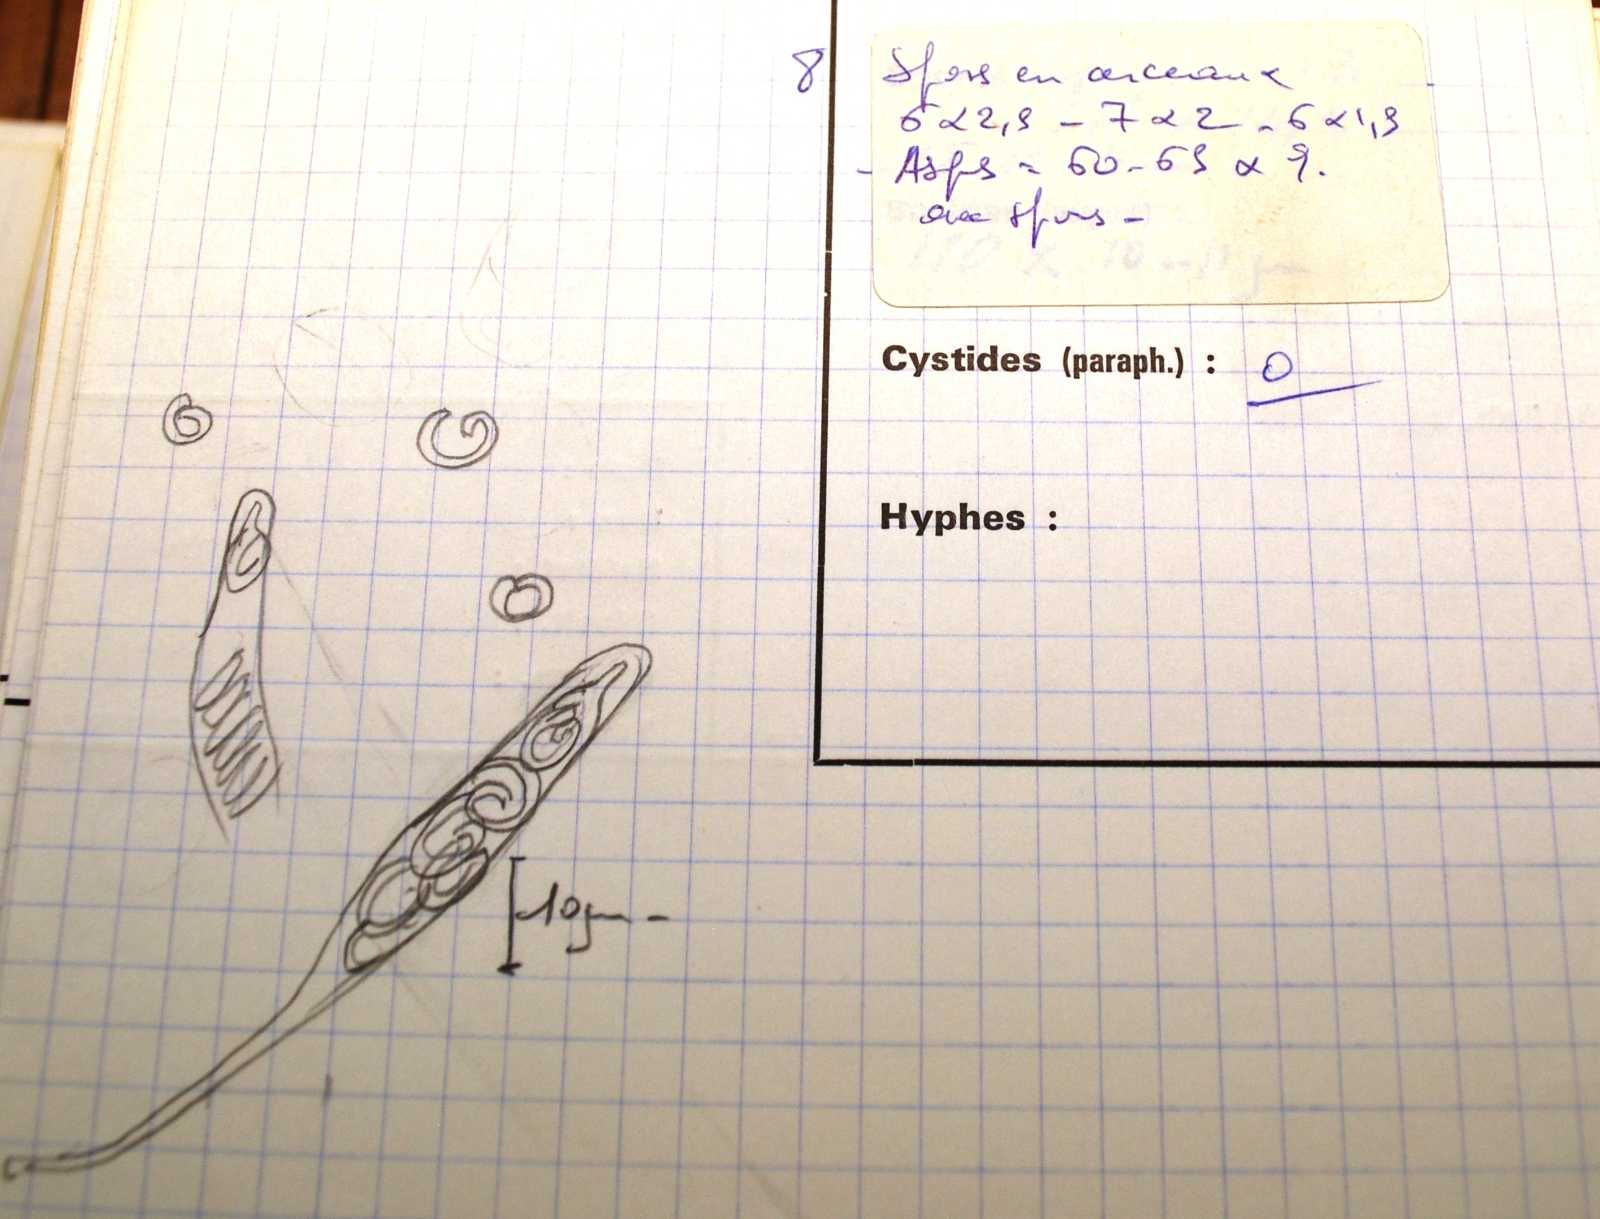 8 Spores en cerceaux
6 x 2,5 - 7 x 2 - 6 x 1,5
- Asques = 60-65 x 9.
avec spores -
Cystides (paraph.) : 0
Hyphes :
10 µm -